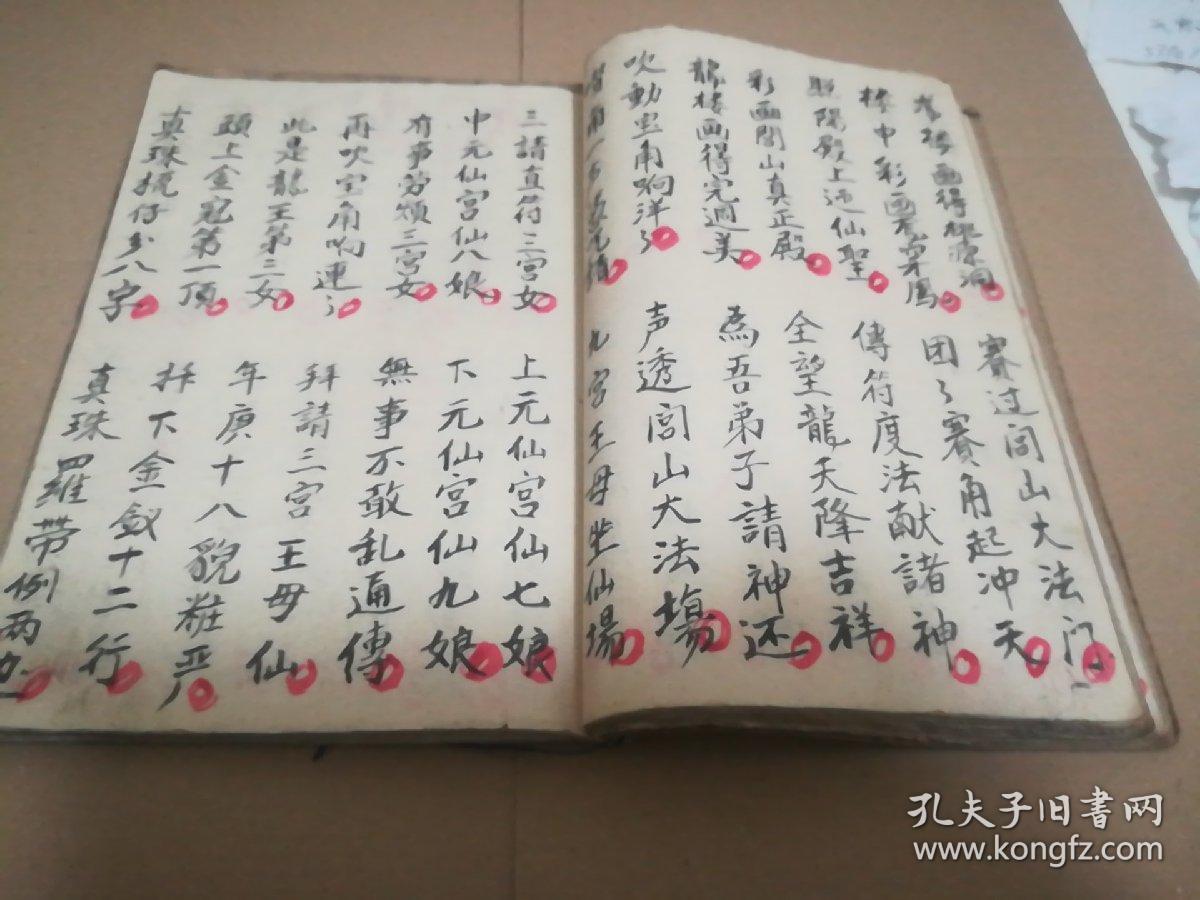 楼画得桃源洞 赛过闾山大法门
楼中彩画 团了赛角起冲天
照陽殿上还仙聖 傳符度法献諸神
彩画閭山真正殿 全望龍天降吉祥
龍楼画得完週美 為吾弟子請神还
吹動宝角响洋了 声透閭山大法場
九宫王母坐仙場
三請直符三宮女 上元仙宫仙七娘
中元仙宫仙八娘 下元仙宫仙九娘
有事劳煩三宫女 無事不敢乱通傳
再吹宝角响連〻 拜請三宫王母仙
此是龍王第三女 年庚十八貌粧严
頭上金冠第一頂 拝下金釵十二行
真珠梳仔分八字 真珠羅带例两边
孔夫子旧书网
www.kongfz.com